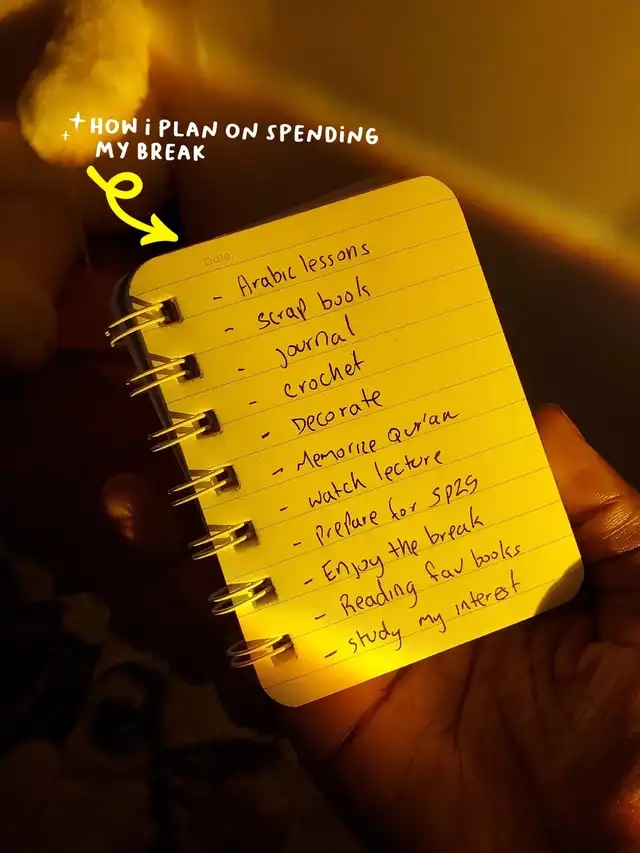 HOW i PLAN ON SPENDING
MY BREAK
Date
- Arabic lessons
- scrap book
- journal
- crochet
- Decorate
- Memorize Qur'an
- watch lecture
- Prepare for SP25
- Enjoy the break
- Reading fav books
- study my interest